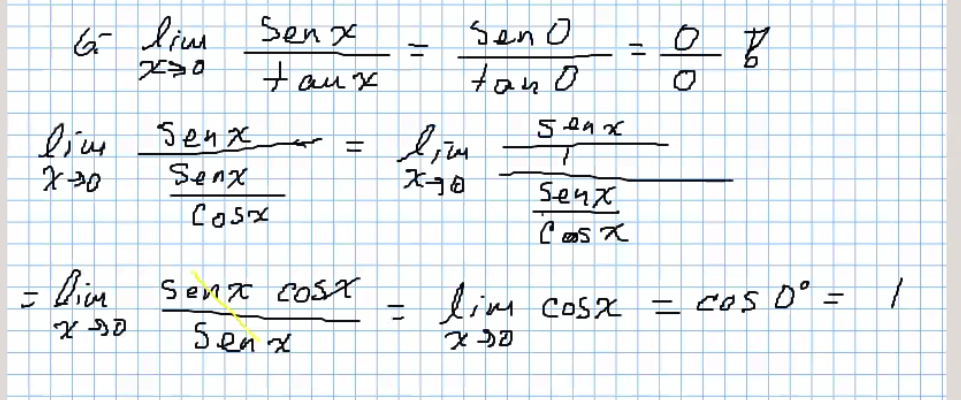 6- lim x→0 sen x / tan x = sen 0 / tan 0 = 0 / 0
lim x→0 sen x / (sen x / cos x) = lim x→0 (sen x / 1) / (sen x / cos x)
= lim x→0 sen x cos x / sen x = lim x→0 cos x = cos 0° = 1